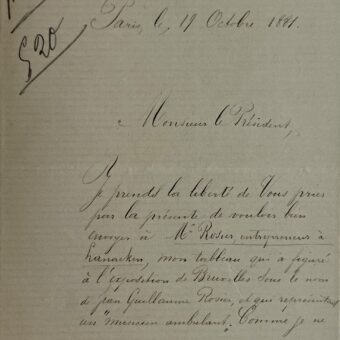 520
Paris, le 19 Octobre 1881.
Monsieur le Président,
Je prends la liberté de Vous prier
par la présente de vouloir bien
envoyer à Mr Rosier, entrepreneur à
Lanaeken, mon tableau qui a figuré
à l'exposition de Bruxelles sous le nom
de Jean Guillaume Rosier, et qui représentait
un "musicien ambulant". Comme je ne